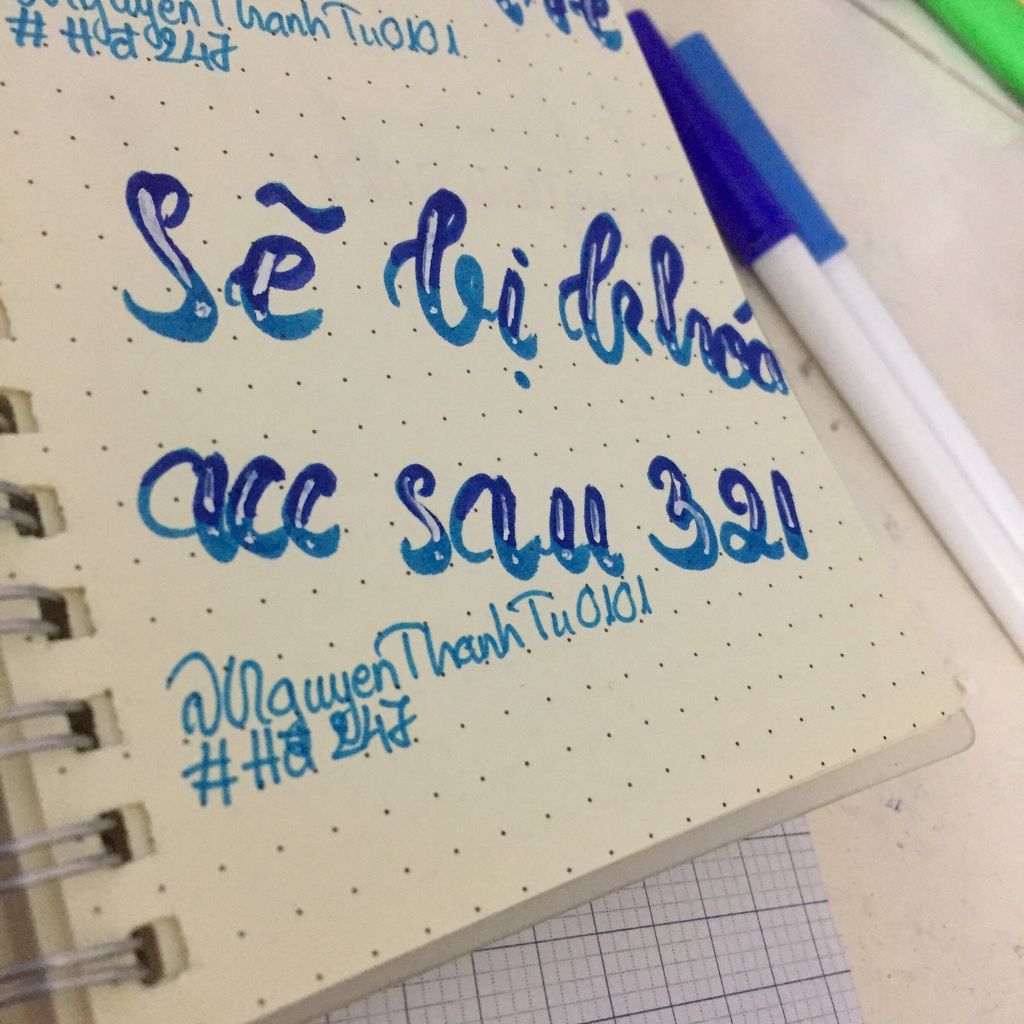 @NguyenThanhTu0101
#Hđ247
Sẽ bị khoá
acc sau 321
@NguyenThanhTu0101
#Hđ247